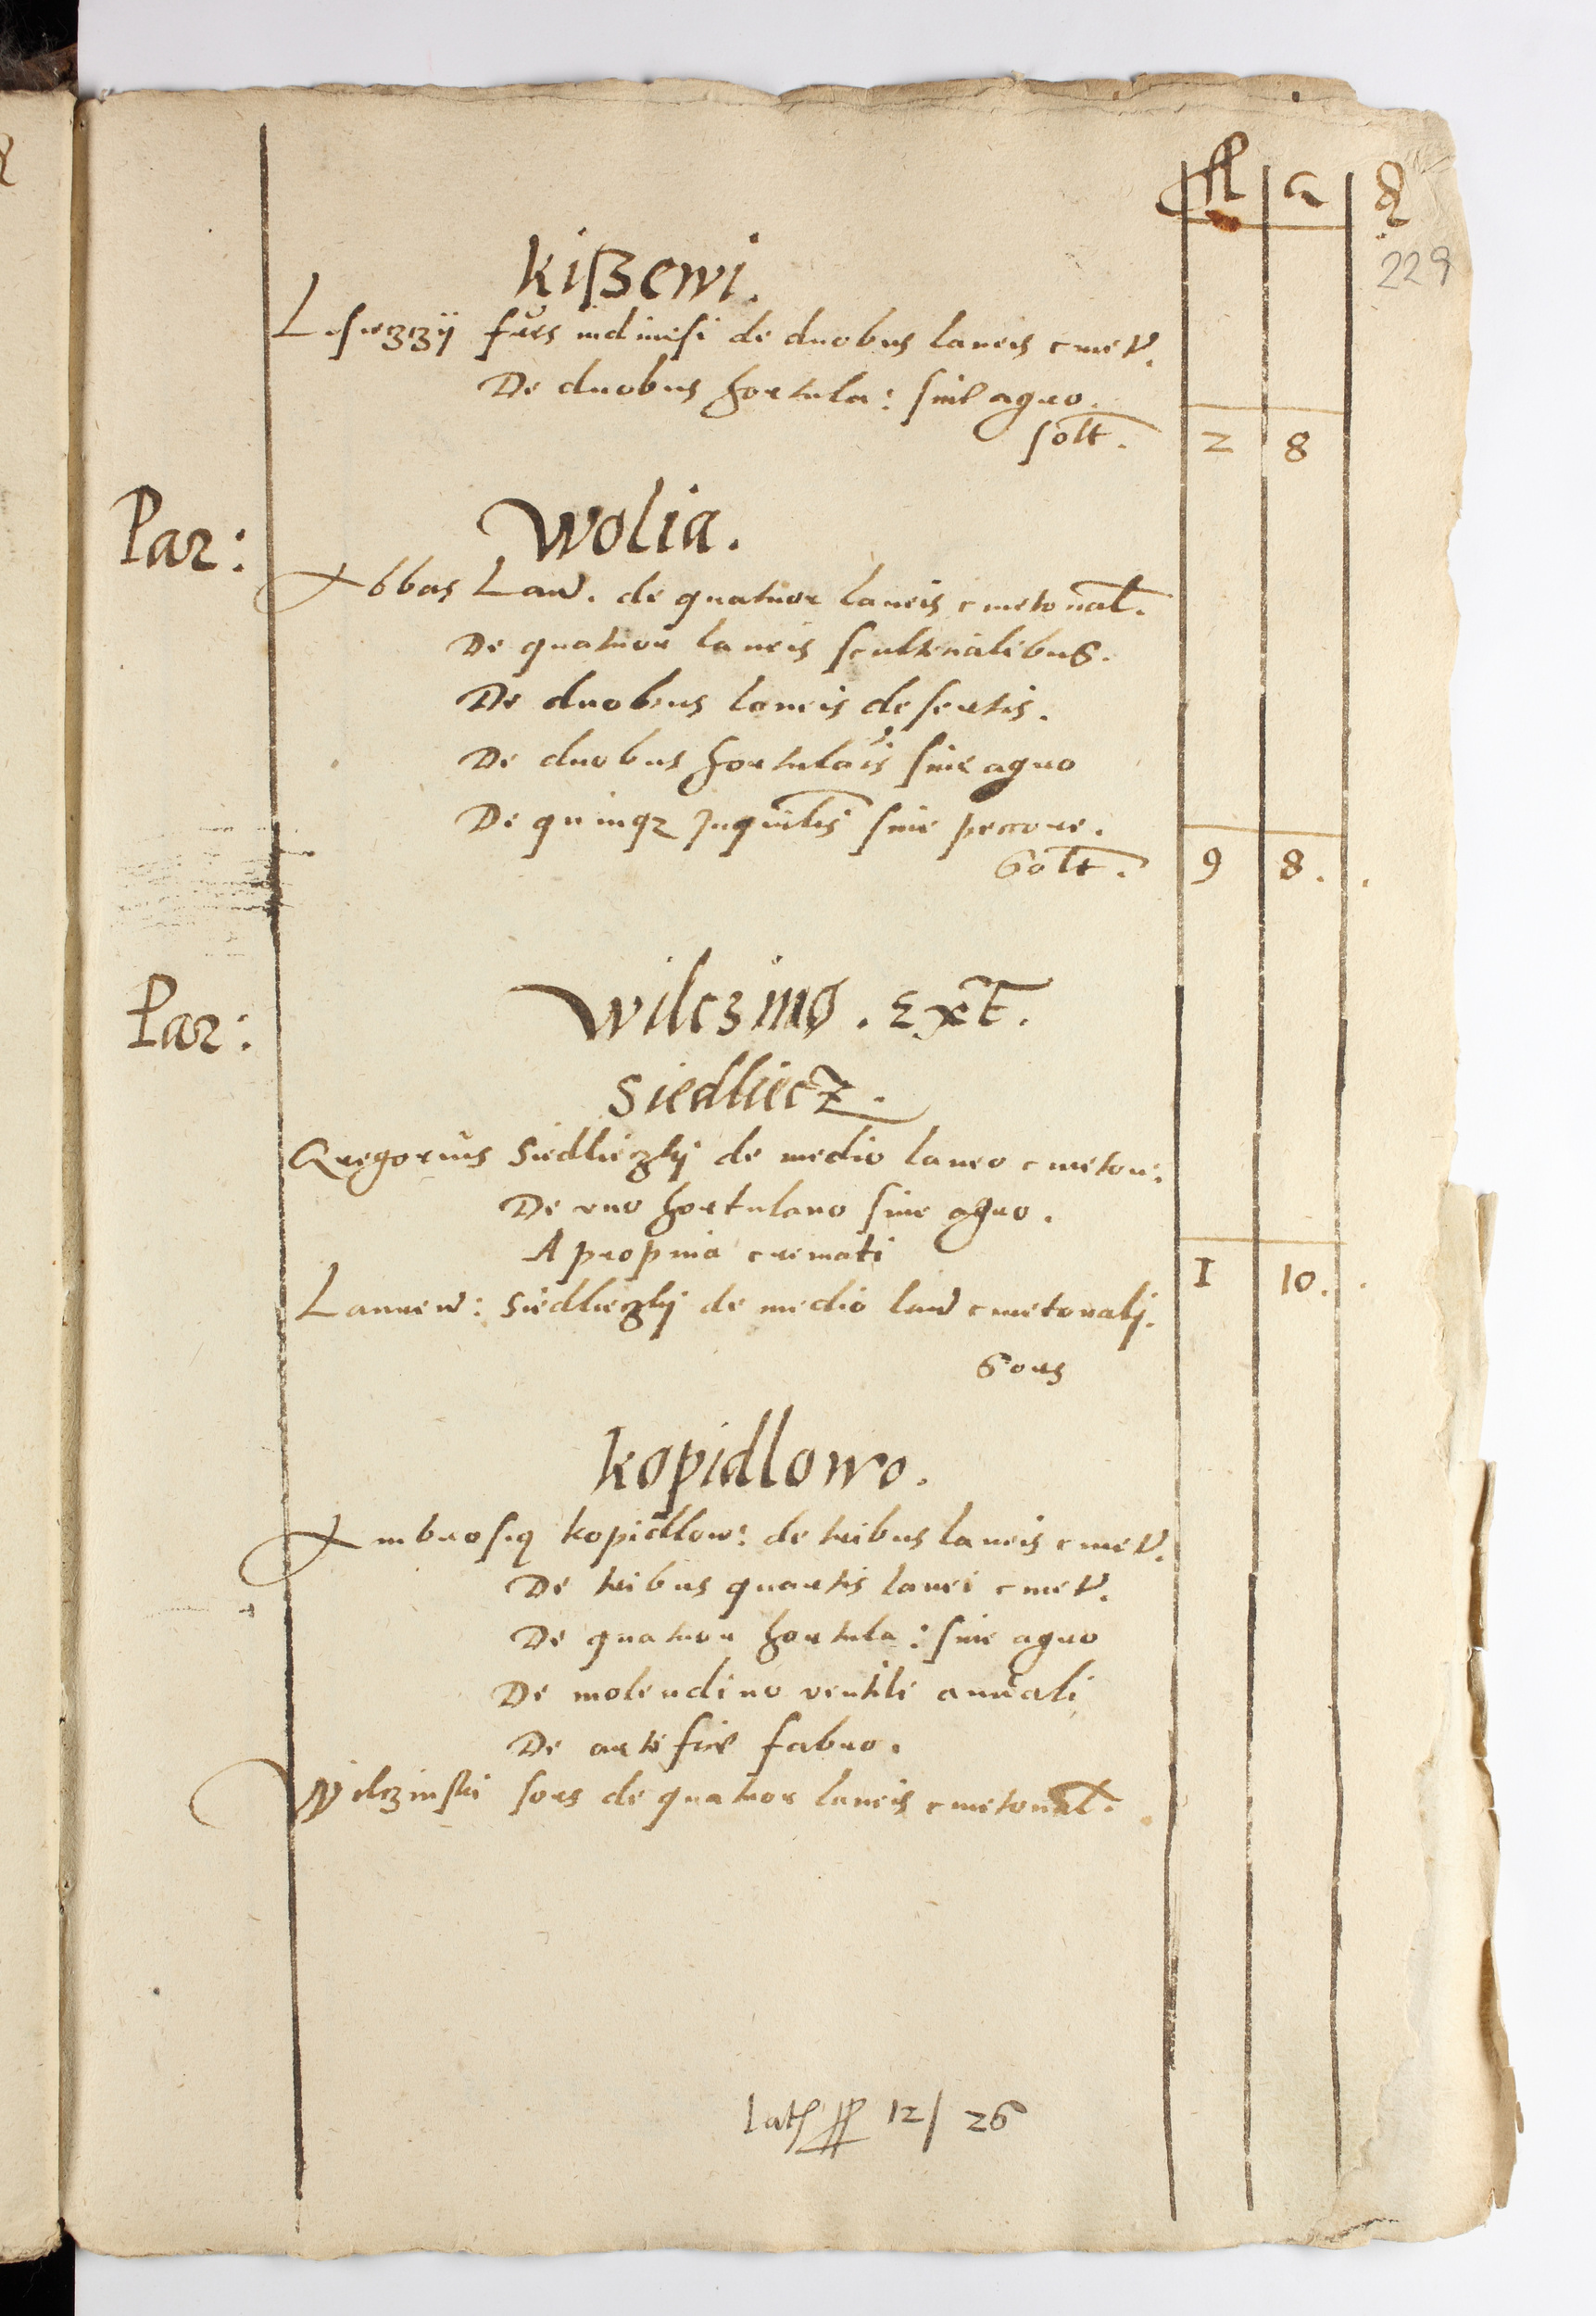 fl g d
229
kißewi.
Lisieczzÿ frēs indiuisi de duobus laneis cmet.
De duobus hortula: sine agro.
solt. 2 8
Par: Wolia.
Abbas Land. de quatuor laneis cmetonal.
De quatuor laneis scultetialibus.
De duobus laneis desertis.
De duobus hortulais sine agro
De quinqz Inquilis sine pecore.
Solt. 9 8.
Par: Wilczino. Ext.
Siedliecz.
Gregorius Siedlieczkij de medio laneo cmeton:
De vno hortulano sine agro.
A propina cremati 1 10.
Lauren: Siedlieczkij de medio lan cmetonalj.
Sors
kopidlowo.
Ambrosiq kopidlow: de tribus laneis cmet.
De tribus quartis lanei cmet.
De quatuor hortula: sine agro
De molendino ventili annali
De artifice fabro.
Wilczinski sors de quatuor laneis cmetonal.
lat fl 12/ 26